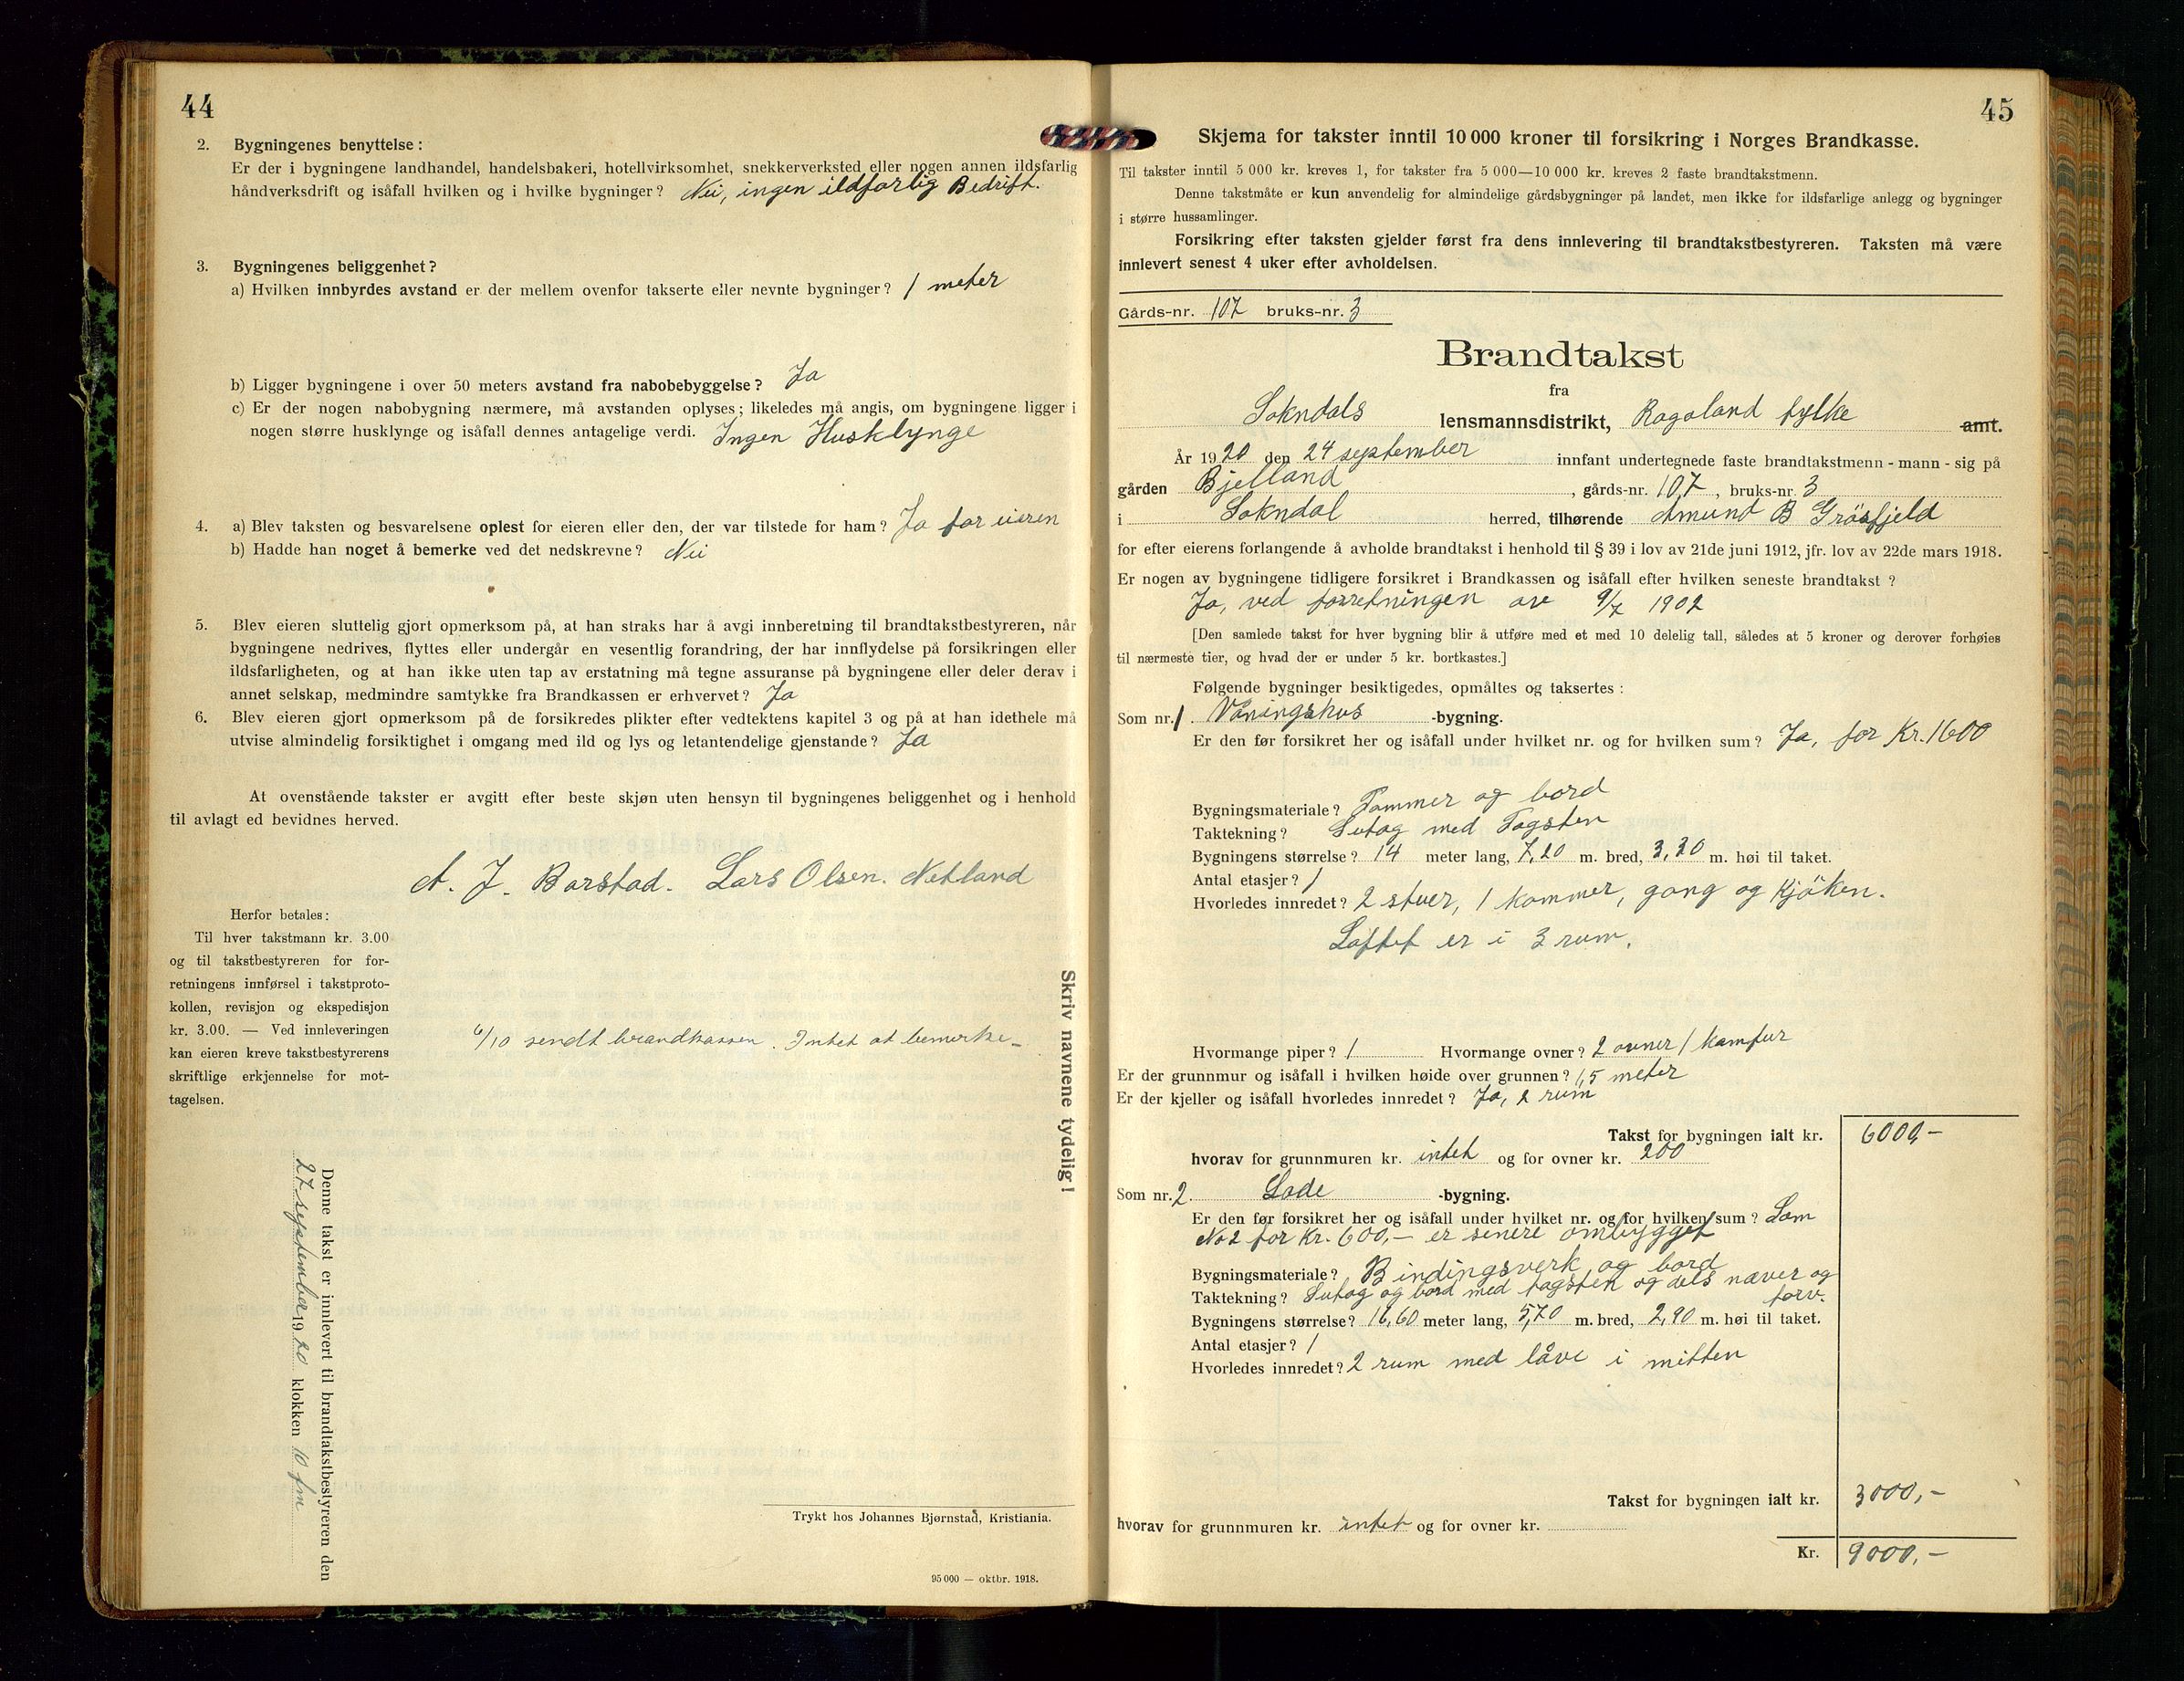 44
2. Bygningenes benyttelse:
Er der i bygningene landhandel, handelsbakeri, hotellvirksomhet, snekkerverksted eller nogen annen ildsfarlig
håndverksdrift og isåfall hvilken og i hvilke bygninger? Nei, ingen ildfarlig Bedrift.
3. Bygningenes beliggenhet?
a) Hvilken innbyrdes avstand er der mellem ovenfor takserte eller nevnte bygninger? 1 meter
b) Ligger bygningene i over 50 meters avstand fra nabobebyggelse? Ja
c) Er der nogen nabobygning nærmere, må avstanden oplyses; likeledes må angis, om bygningene ligger i
nogen større husklynge og isåfall dennes antagelige verdi. Ingen Husklynge
4. a) Blev taksten og besvarelsene oplest for eieren eller den, der var tilstede for ham? Ja for eieren
b) Hadde han noget å bemerke ved det nedskrevne? Nei
5. Blev eieren sluttelig gjort opmerksom på, at han straks har å avgi innberetning til brandtakstbestyreren, når
bygningene nedrives, flyttes eller undergår en vesentlig forandring, der har innflydelse på forsikringen eller
ildsfarligheten, og at han ikke uten tap av erstatning må tegne assuranse på bygningene eller deler derav i
annet selskap, medmindre samtykke fra Brandkassen er erhvervet? Ja
6. Blev eieren gjort opmerksom på de forsikredes plikter efter vedtektens kapitel 3 og på at han idethele må
utvise almindelig forsiktighet i omgang med ild og lys og letantendelige gjenstande? Ja
At ovenstående takster er avgitt efter beste skjøn uten hensyn til bygningenes beliggenhet og i henhold
til avlagt ed bevidnes herved.
A. J. Barstad. Lars Olsen. Netland
Herfor betales:
Til hver takstmann kr. 3.00
og til takstbestyreren for for-
retningens innførsel i takstproto-
kollen, revisjon og ekspedisjon
kr. 3.00. — Ved innleveringen
kan eieren kreve takstbestyrerens
skriftlige erkjennelse for mot-
tagelsen.
6/10 sendt brandkassen. Intet at bemerke-
Skriv navnene tydelig!
Denne takst er innlevert til brandtakstbestyreren den
27 september 1920 klokken 10 fm
Trykt hos Johannes Bjørnstad, Kristiania.
95 000 — oktbr. 1918.
45
Skjema for takster inntil 10 000 kroner til forsikring i Norges Brandkasse.
Til takster inntil 5 000 kr. kreves 1, for takster fra 5 000—10 000 kr. kreves 2 faste brandtakstmenn.
Denne takstmåte er kun anvendelig for almindelige gårdsbygninger på landet, men ikke for ildsfarlige anlegg og bygninger
i større hussamlinger.
Forsikring efter taksten gjelder først fra dens innlevering til brandtakstbestyreren. Taksten må være
innlevert senest 4 uker efter avholdelsen.
Gårds-nr. 107 bruks-nr. 3
Brandtakst
fra
Sokndals lensmannsdistrikt, Rogaland fylke amt.
År 1920 den 24 september innfant undertegnede faste brandtakstmenn - mann - sig på
gården Bjelland, gårds-nr. 107, bruks-nr. 3
i Sokndal herred, tilhørende Amund B Grösfjeld
for efter eierens forlangende å avholde brandtakst i henhold til § 39 i lov av 21de juni 1912, jfr. lov av 22de mars 1918.
Er nogen av bygningene tidligere forsikret i Brandkassen og isåfall efter hvilken seneste brandtakst?
Ja, ved forretningen av 9/7 1902
[Den samlede takst for hver bygning blir å utføre med et med 10 delelig tall, således at 5 kroner og derover forhøies
til nærmeste tier, og hvad der er under 5 kr. bortkastes.]
Følgende bygninger besiktigedes, opmåltes og taksertes:
Som nr. 1. Våningshus -bygning.
Er den før forsikret her og isåfall under hvilket nr. og for hvilken sum? Ja, for Kr. 1600
Bygningsmateriale? Tømmer og bord
Taktekning? Sutag med Tagsten
Bygningens størrelse? 14 meter lang, 7,20 m. bred, 3,30 m. høi til taket.
Antal etasjer? 1
Hvorledes innredet? 2 stuer, 1 kammer, gang og Kjöken.
Loftet er i 3 rum.
Hvormange piper? 1 Hvormange ovner? 2 ovner 1 komfur
Er der grunnmur og isåfall i hvilken høide over grunnen? 1,5 meter
Er der kjeller og isåfall hvorledes innredet? Ja, 2 rum
Takst for bygningen ialt kr. 6000,-
hvorav for grunnmuren kr. intet og for ovner kr. 200
Som nr. 2. Lade -bygning.
Er den før forsikret her og isåfall under hvilket nr. og for hvilken sum? Som
No 2 for Kr. 600,- er senere ombygget
Bygningsmateriale? Bindingsverk og bord
Taktekning? Sutag og bord med tagsten og dels næver og
torv.
Bygningens størrelse? 16,60 meter lang, 5,70 m. bred, 2,90 m. høi til taket.
Antal etasjer? 1
Hvorledes innredet? 2 rum med låve i mitten
Takst for bygningen ialt kr. 3000,-
hvorav for grunnmuren kr. intet og for ovner kr.
Kr. 9000,-